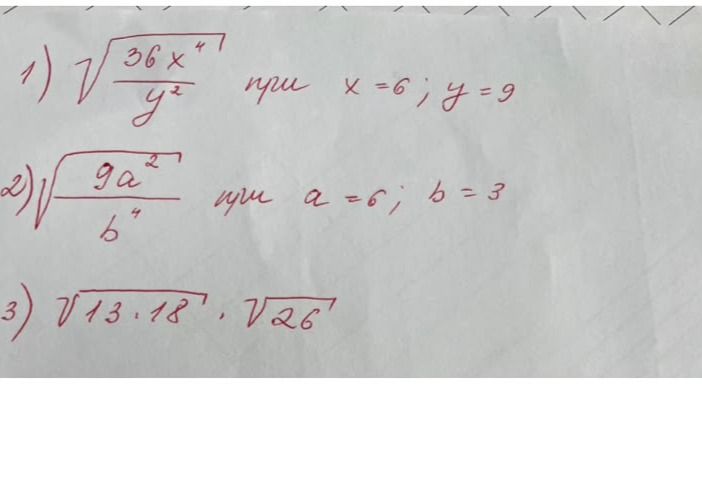 1) √(36x⁴/y²) при x = 6; y = 9
2) √(9a²/b⁴) при a = 6; b = 3
3) √13·18 · √26